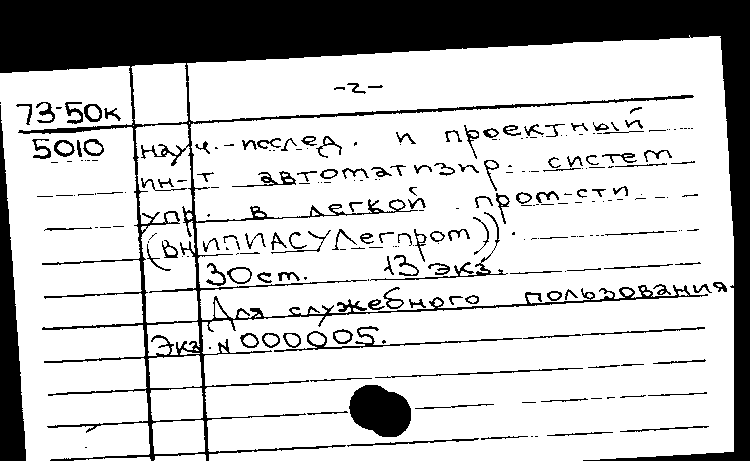 -2-
73-50к
5010
науч.-исслед. и проектный
ин-т автоматизир. систем
упр. в легкой пром-сти
(ВНИПИАСУЛегпром)).
30 ст. 13 экз.
Для служебного пользования.
Экз. N 000005.